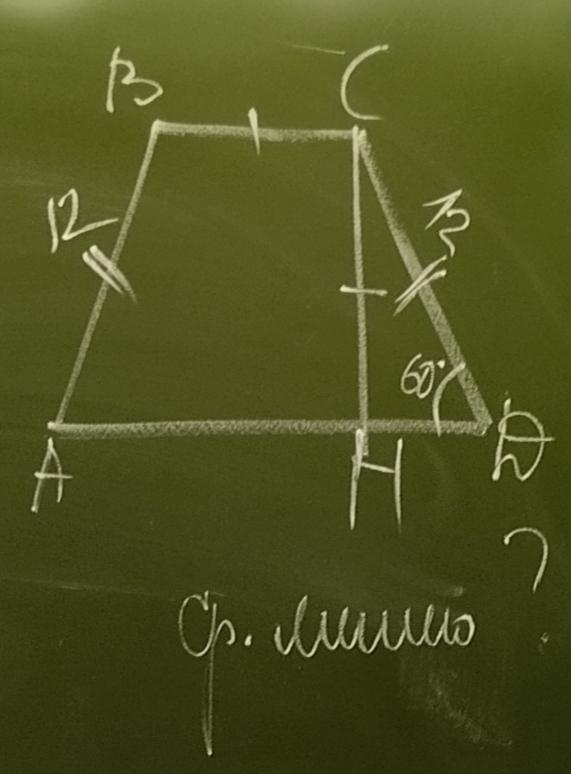 B C
12 12
60°
A H D
Ср. линию ?